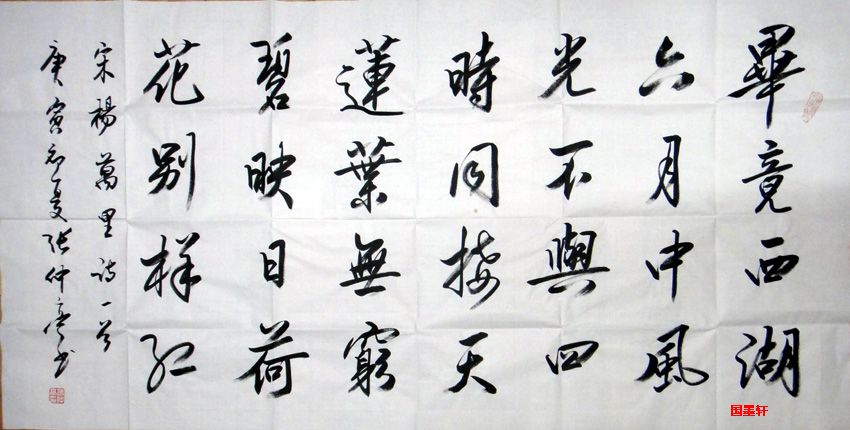 畢竟西湖
六月中風
光不與四
時同接天
蓮葉無窮
碧映日荷
花别样红
宋楊萬里诗一首
庚寅初夏张仲书
国墨轩